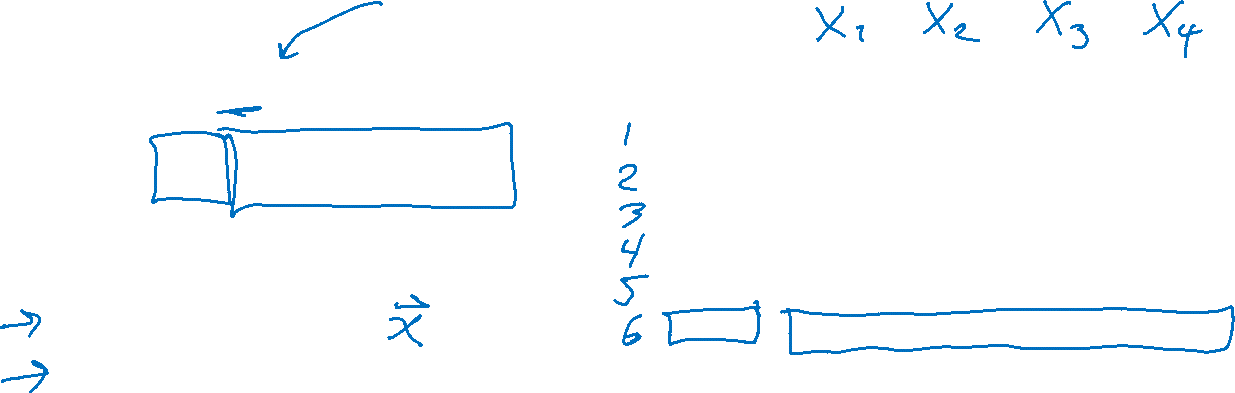 X₁ X₂ X₃ X₄
1
2
3
4
5
x⃗
6